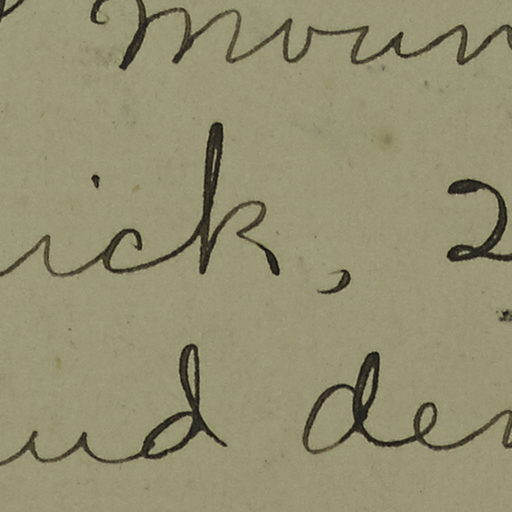 Moun
ick, 2
ud den